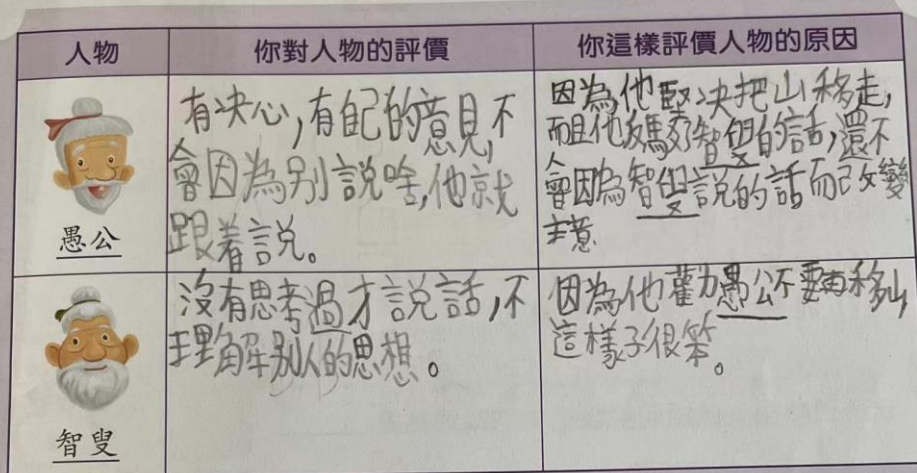 人物
你對人物的評價
你這樣評價人物的原因
愚公
有决心,有自己的意見,不
會因為别説啥,他就
跟着説。
因為他堅决把山移走,
而且他反駁智叟的話,還不
會因為智叟説的話而改變
主意
智叟
沒有思考過才説話,不
理解别人的思想。
因為他勸愚公不要再移山,
這樣子很笨。